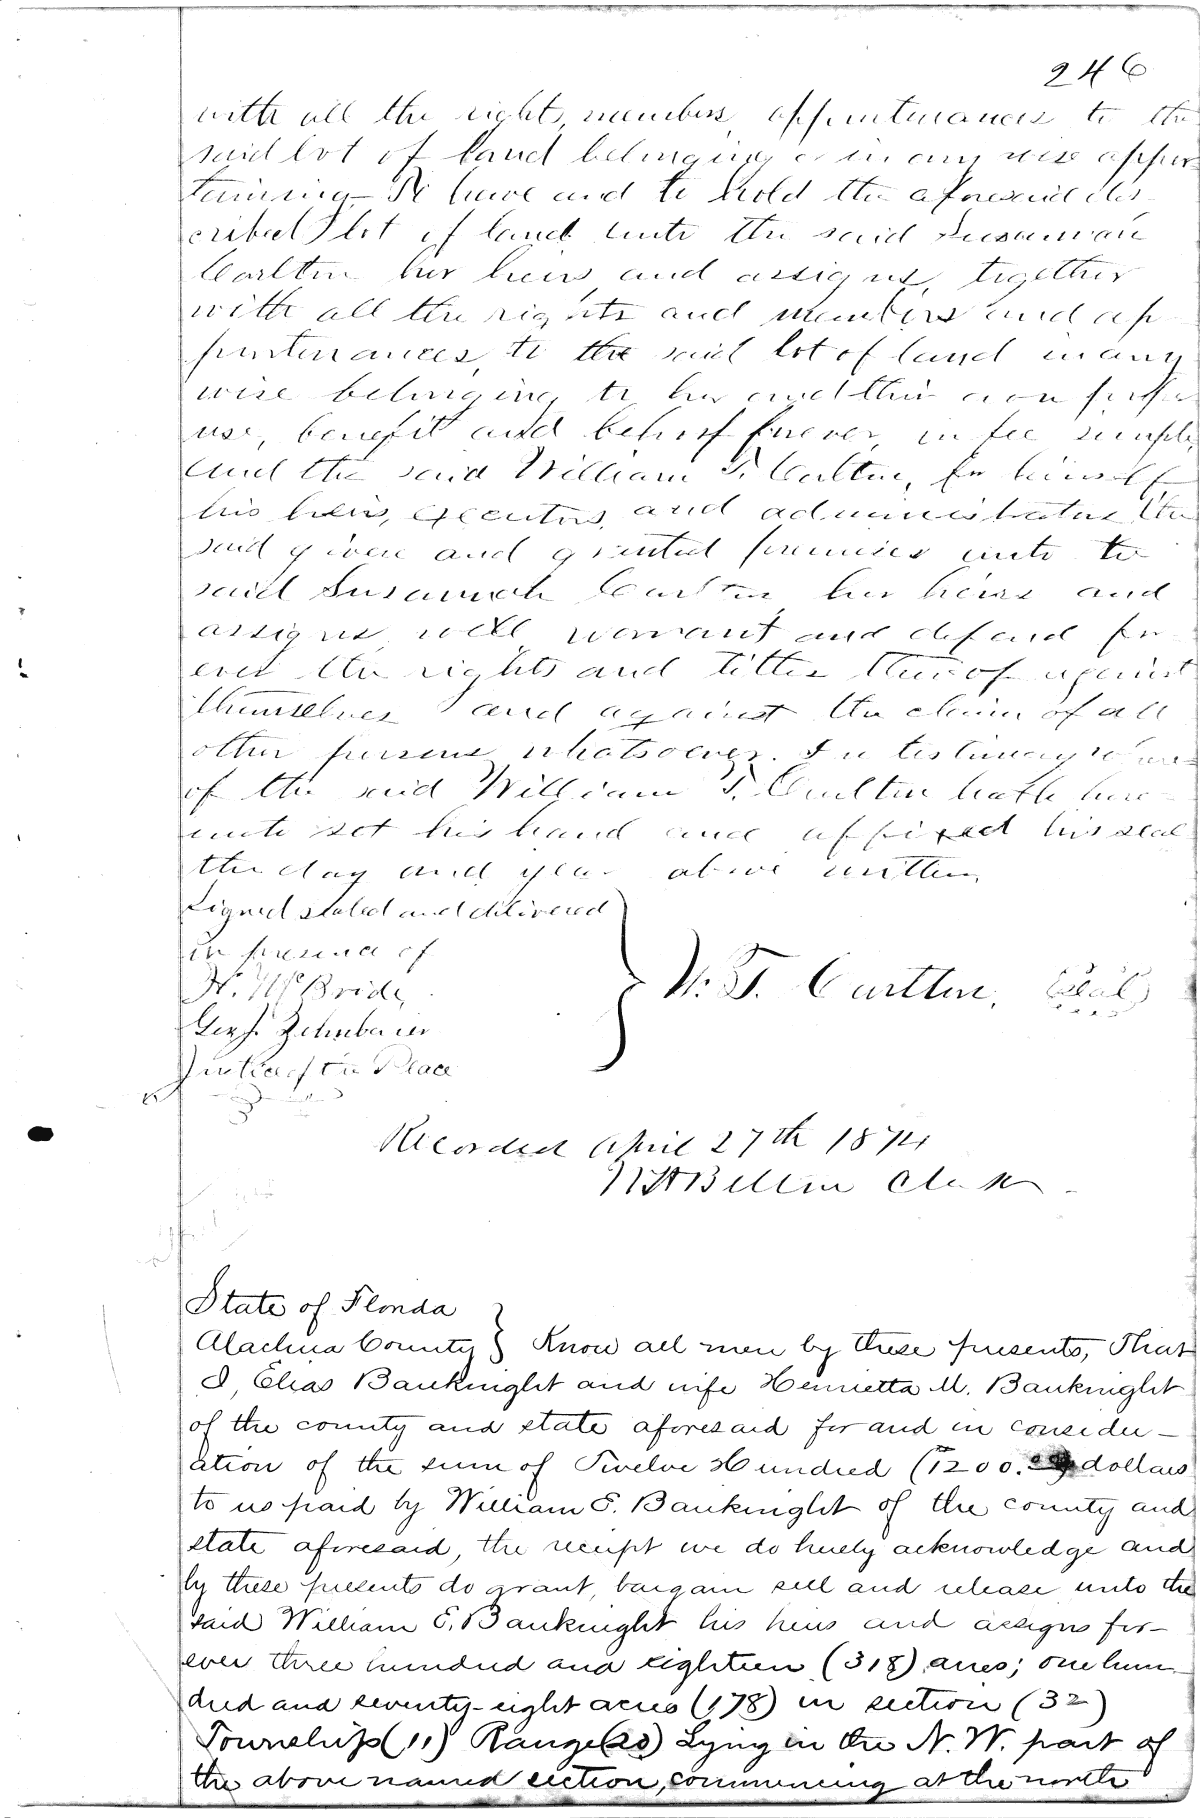 246
with all the right, members, appurtenances to the
said lot of land belonging or in any wise apper-
taining - To have and to hold the aforesaid des-
cribed lot of land unto the said Susannah
Carlton her heirs and assigns, together
with all the rights and members and ap
purtenances, to the said lot of land in any
wise belonging to her and their own proper
use, benefit and behoof forever, in fee simple,
And the said William T. Carlton, for himself
his heirs, executors, and administrators the
said given and granted premises unto the
said Susannah Carlton, her heirs and
assigns will warrant and defend for
ever the rights and titles thereof against
themselves and against the claim of all
other persons whatsoever. In testimony where
of the said William T. Carlton hath here-
unto set his hand and affixed his seal
the day and year above written,
Signed sealed and delivered
in presence of
H. McBride,
W. T. Carlton, Seal
Geo. J. Zehnbauer
Justice of the Peace
Recorded April 27th 1874
Clerk
State of Florida
Alachua County } Know all men by these presents, That
I, Elias Bauknight and wife Henrietta M. Bauknight
of the county and state aforesaid for and in consider-
ation of the sum of Twelve Hundred (1200.00) dollars
to us paid by William E. Bauknight of the county and
state aforesaid, the receipt we do hereby acknowledge and
by these presents do grant, bargain sell and release unto the
said William E. Bauknight his heirs and assigns for-
ever three hundred and eighteen (318) acres; one hun-
dred and seventy-eight acres (178) in section (32)
Township (11) Range (20) Lying in the N. W. part of
the above named section, commencing at the north